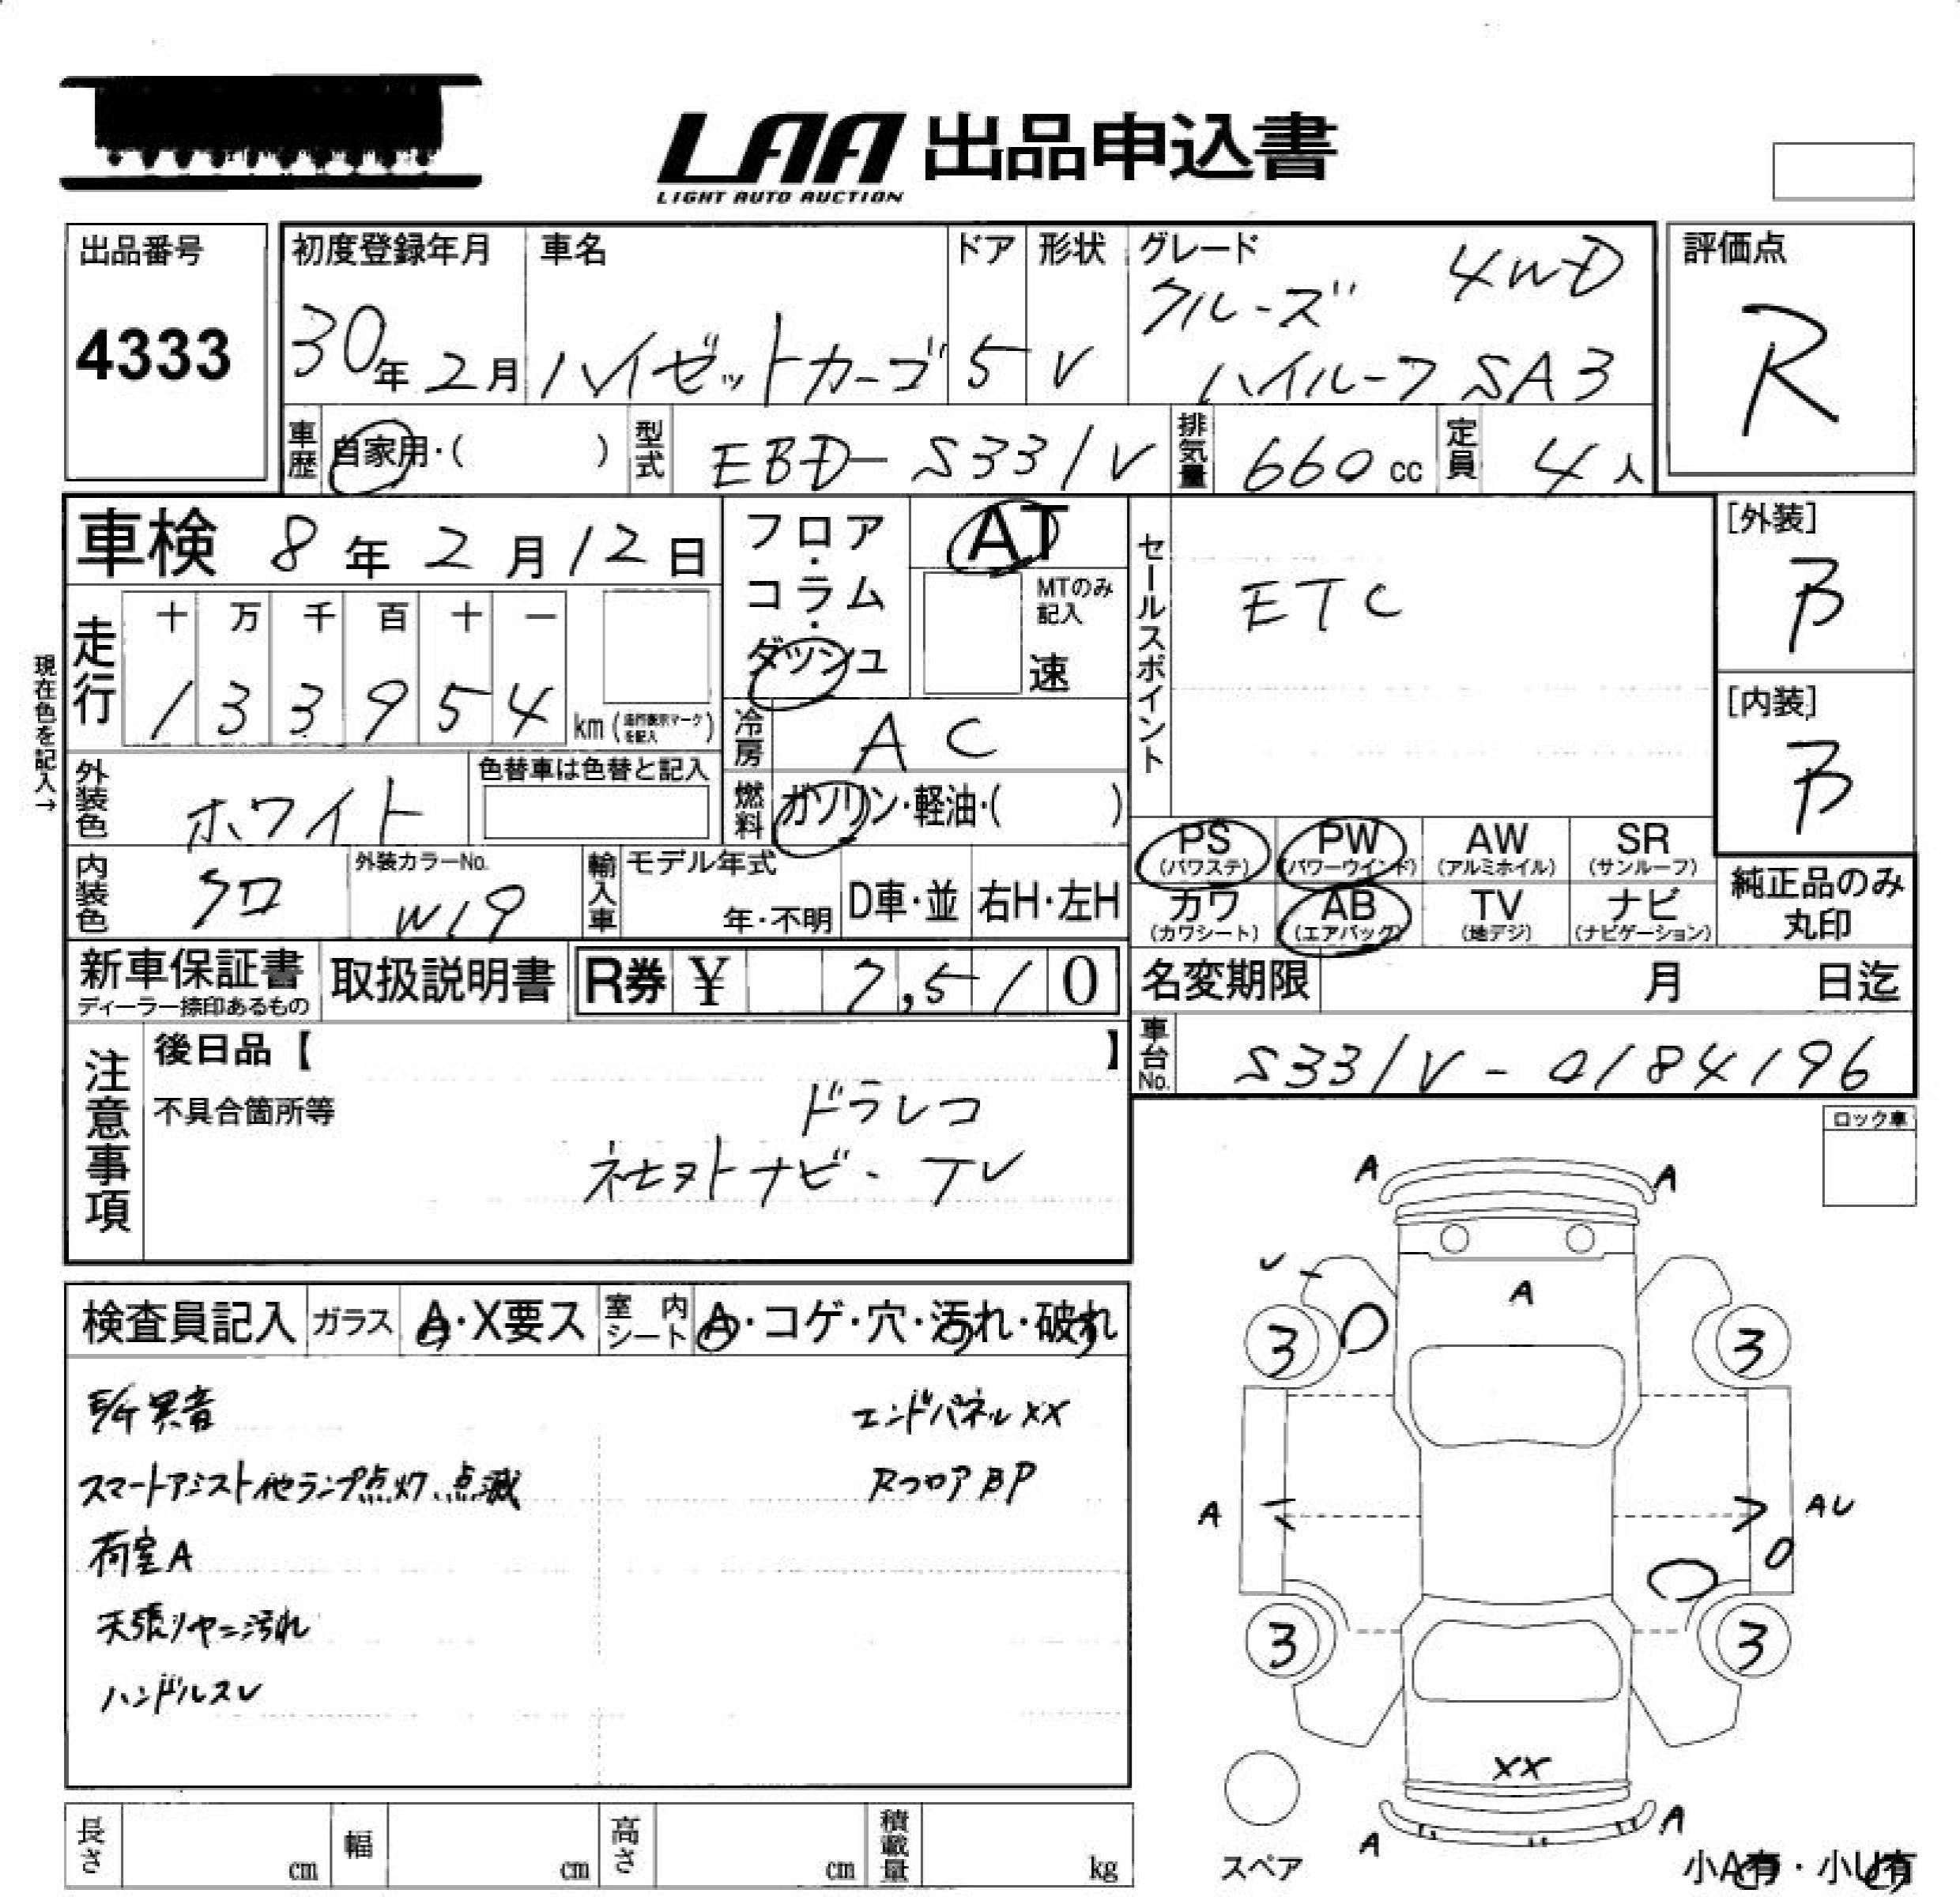 LAA 出品申込書
LIGHT AUTO AUCTION
出品番号
4333
初度登録年月
30年2月
車名
ハイゼットカーゴ
ドア
5
形状
V
グレード
クルーズ 4WD
ハイルーフ SA3
評価点
R
車歴
自家用・( )
型式
EBD-S331V
排気量
660cc
定員
4人
車検 8年2月12日
フロア・コラム・ダッシュ
AT
MTのみ記入
速
セールスポイント
ETC
[外装]
B
[内装]
B
現在色を記入→
走行
十 万 千 百 十 一
1 3 3 9 5 4
km (走行表示マークを記入)
冷房
AC
外装色
ホワイト
色替車は色替と記入
燃料
ガソリン・軽油・( )
内装色
クロ
外装カラーNo.
W19
輸入車
モデル年式
年・不明
D車・並
右H・左H
PS (パワステ)
PW (パワーウインド)
AW (アルミホイル)
SR (サンルーフ)
カワ (カワシート)
AB (エアバッグ)
TV (地デジ)
ナビ (ナビゲーション)
純正品のみ丸印
新車保証書
ディーラー捺印あるもの
取扱説明書
R券 ¥ 7,510
名変期限 月 日迄
車台No.
S331V-0184196
注意事項
後日品【 】
不具合箇所等
ドラレコ
ナビ・TV
ロック車
検査員記入
ガラス
A・X要ス
室内シート
A・コゲ・穴・汚れ・破れ
異音
エンドパネルXX
スマートアシスト他ランプ点灯、点滅
RフロアBP
荷室A
天張りヤニ汚れ
ハンドルスレ
A A
U
A
3 3
A AU
3 3
XX
A A
スペア
小A有・小U有
長さ cm
幅 cm
高さ cm
積載量 kg